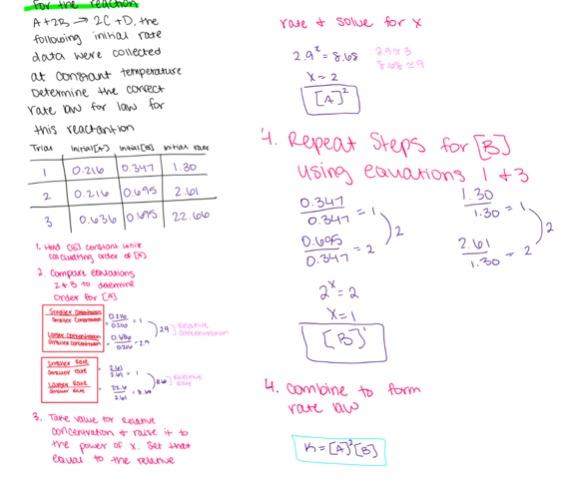 For the reaction
A + 2B → 2C + D, the
following initial rate
data were collected
at constant temperature
Determine the correct
rate law for law for
this reactantion
Trial Initial[A] Initial[B] Initial rate
1 0.216 0.347 1.30
2 0.216 0.695 2.61
3 0.636 0.695 22.66
1. Hold [B] constant while
calculating order of [A]
2. Compare equations
2 & 3 to determine
order for [A]
Smaller Concentration
Smaller Concentration
= 0.216
0.216
= 1
Larger Concentration
Smaller Concentration
= 0.636
0.216
= 2.9
2.9
Relative
Concentration
Smaller Rate
Smaller Rate
= 2.61
2.61
= 1
Larger Rate
Smaller Rate
= 22.6
2.61
= 8.68
8.68
Relative
Rate
3. Take value for Relative
concentration & raise it to
the power of x. Set that
equal to the relative
rate & solve for x
2.9ˣ = 8.68
2.9≈3
8.68≈9
x = 2
[A]²
4. Repeat Steps for [B]
using equations 1 & 3
0.347
0.347
= 1
0.695
0.347
= 2
2
1.30
1.30
= 1
2.61
1.30
= 2
2
2ˣ = 2
x = 1
[B]¹
4. Combine to form
rate law
K = [A]²[B]